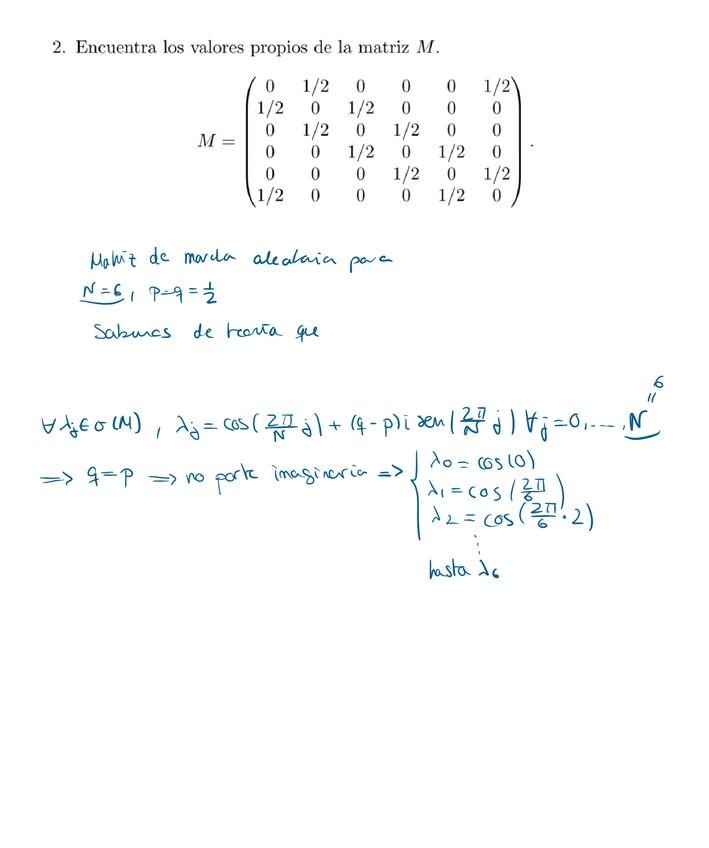 2. Encuentra los valores propios de la matriz M.
M = ( 0 1/2 0 0 0 1/2
1/2 0 1/2 0 0 0
0 1/2 0 1/2 0 0
0 0 1/2 0 1/2 0
0 0 0 1/2 0 1/2
1/2 0 0 0 1/2 0 ) .
Matriz de marcha aleatoria para
N=6, p=q=1/2
Sabemos de teoría que
∀ λj ∈ σ(M), λj = cos(2π/N j) + (q-p)i sen(2π/N j) ∀j=0,...,N = 6
=> q=p => no parte imaginaria => { λ0 = cos(0)
λ1 = cos(2π/6)
λ2 = cos(2π/6 · 2)
⋮
hasta λ6